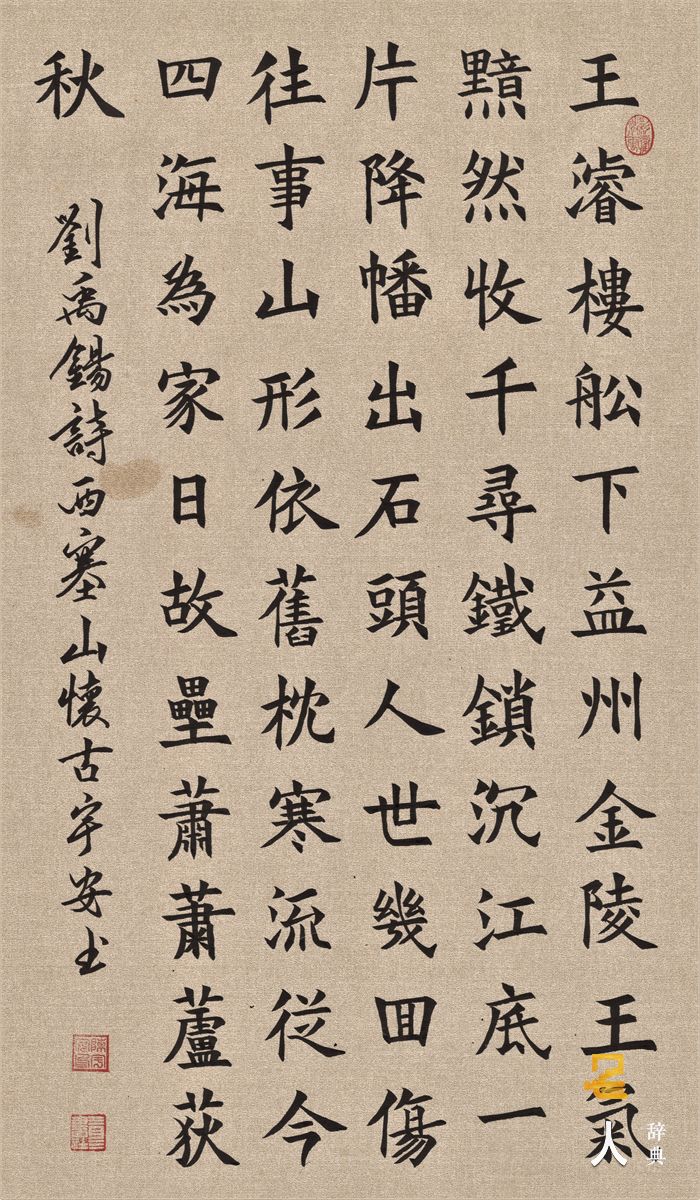 王濬樓舩下益州金陵王氣
黯然收千尋鐵鎖沉江底一
片降幡出石頭人世幾囬傷
往事山形依舊枕寒流従今
四海為家日故壘蕭蕭蘆荻
秋
劉禹錫詩西塞山懷古宇安书
名人
辞典